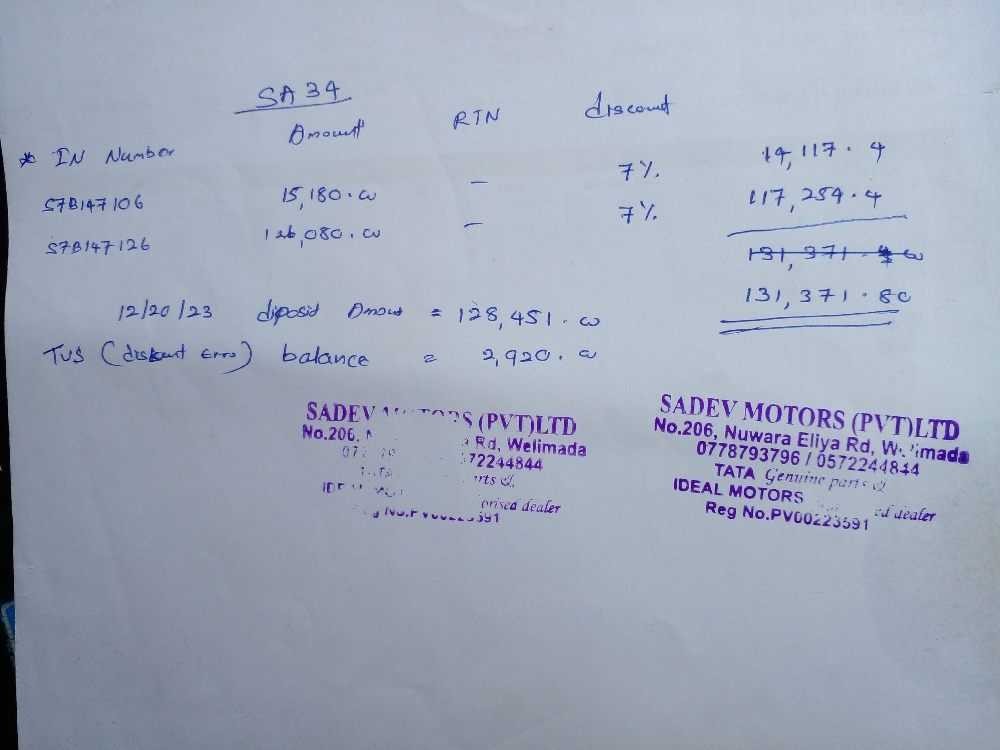 SA 34
* IN Number Amount RTN discount
S7B147106 15,180.00 — 7% 14,117.4
S7B147126 126,080.00 — 7% 117,254.4
131,371.80
12/20/23 diposid Amout = 128,451.00
TVS (diskout Erro) balance = 2,920.00
SADEV MOTORS (PVT)LTD
No.206, Rd, Welimada
72244844
rts &
orised dealer
SADEV MOTORS (PVT)LTD
No.206, Nuwara Eliya Rd, Welimada
0778793796 / 0572244844
TATA Genuine parts &
IDEAL MOTORS ed dealer
Reg No.PV00223591